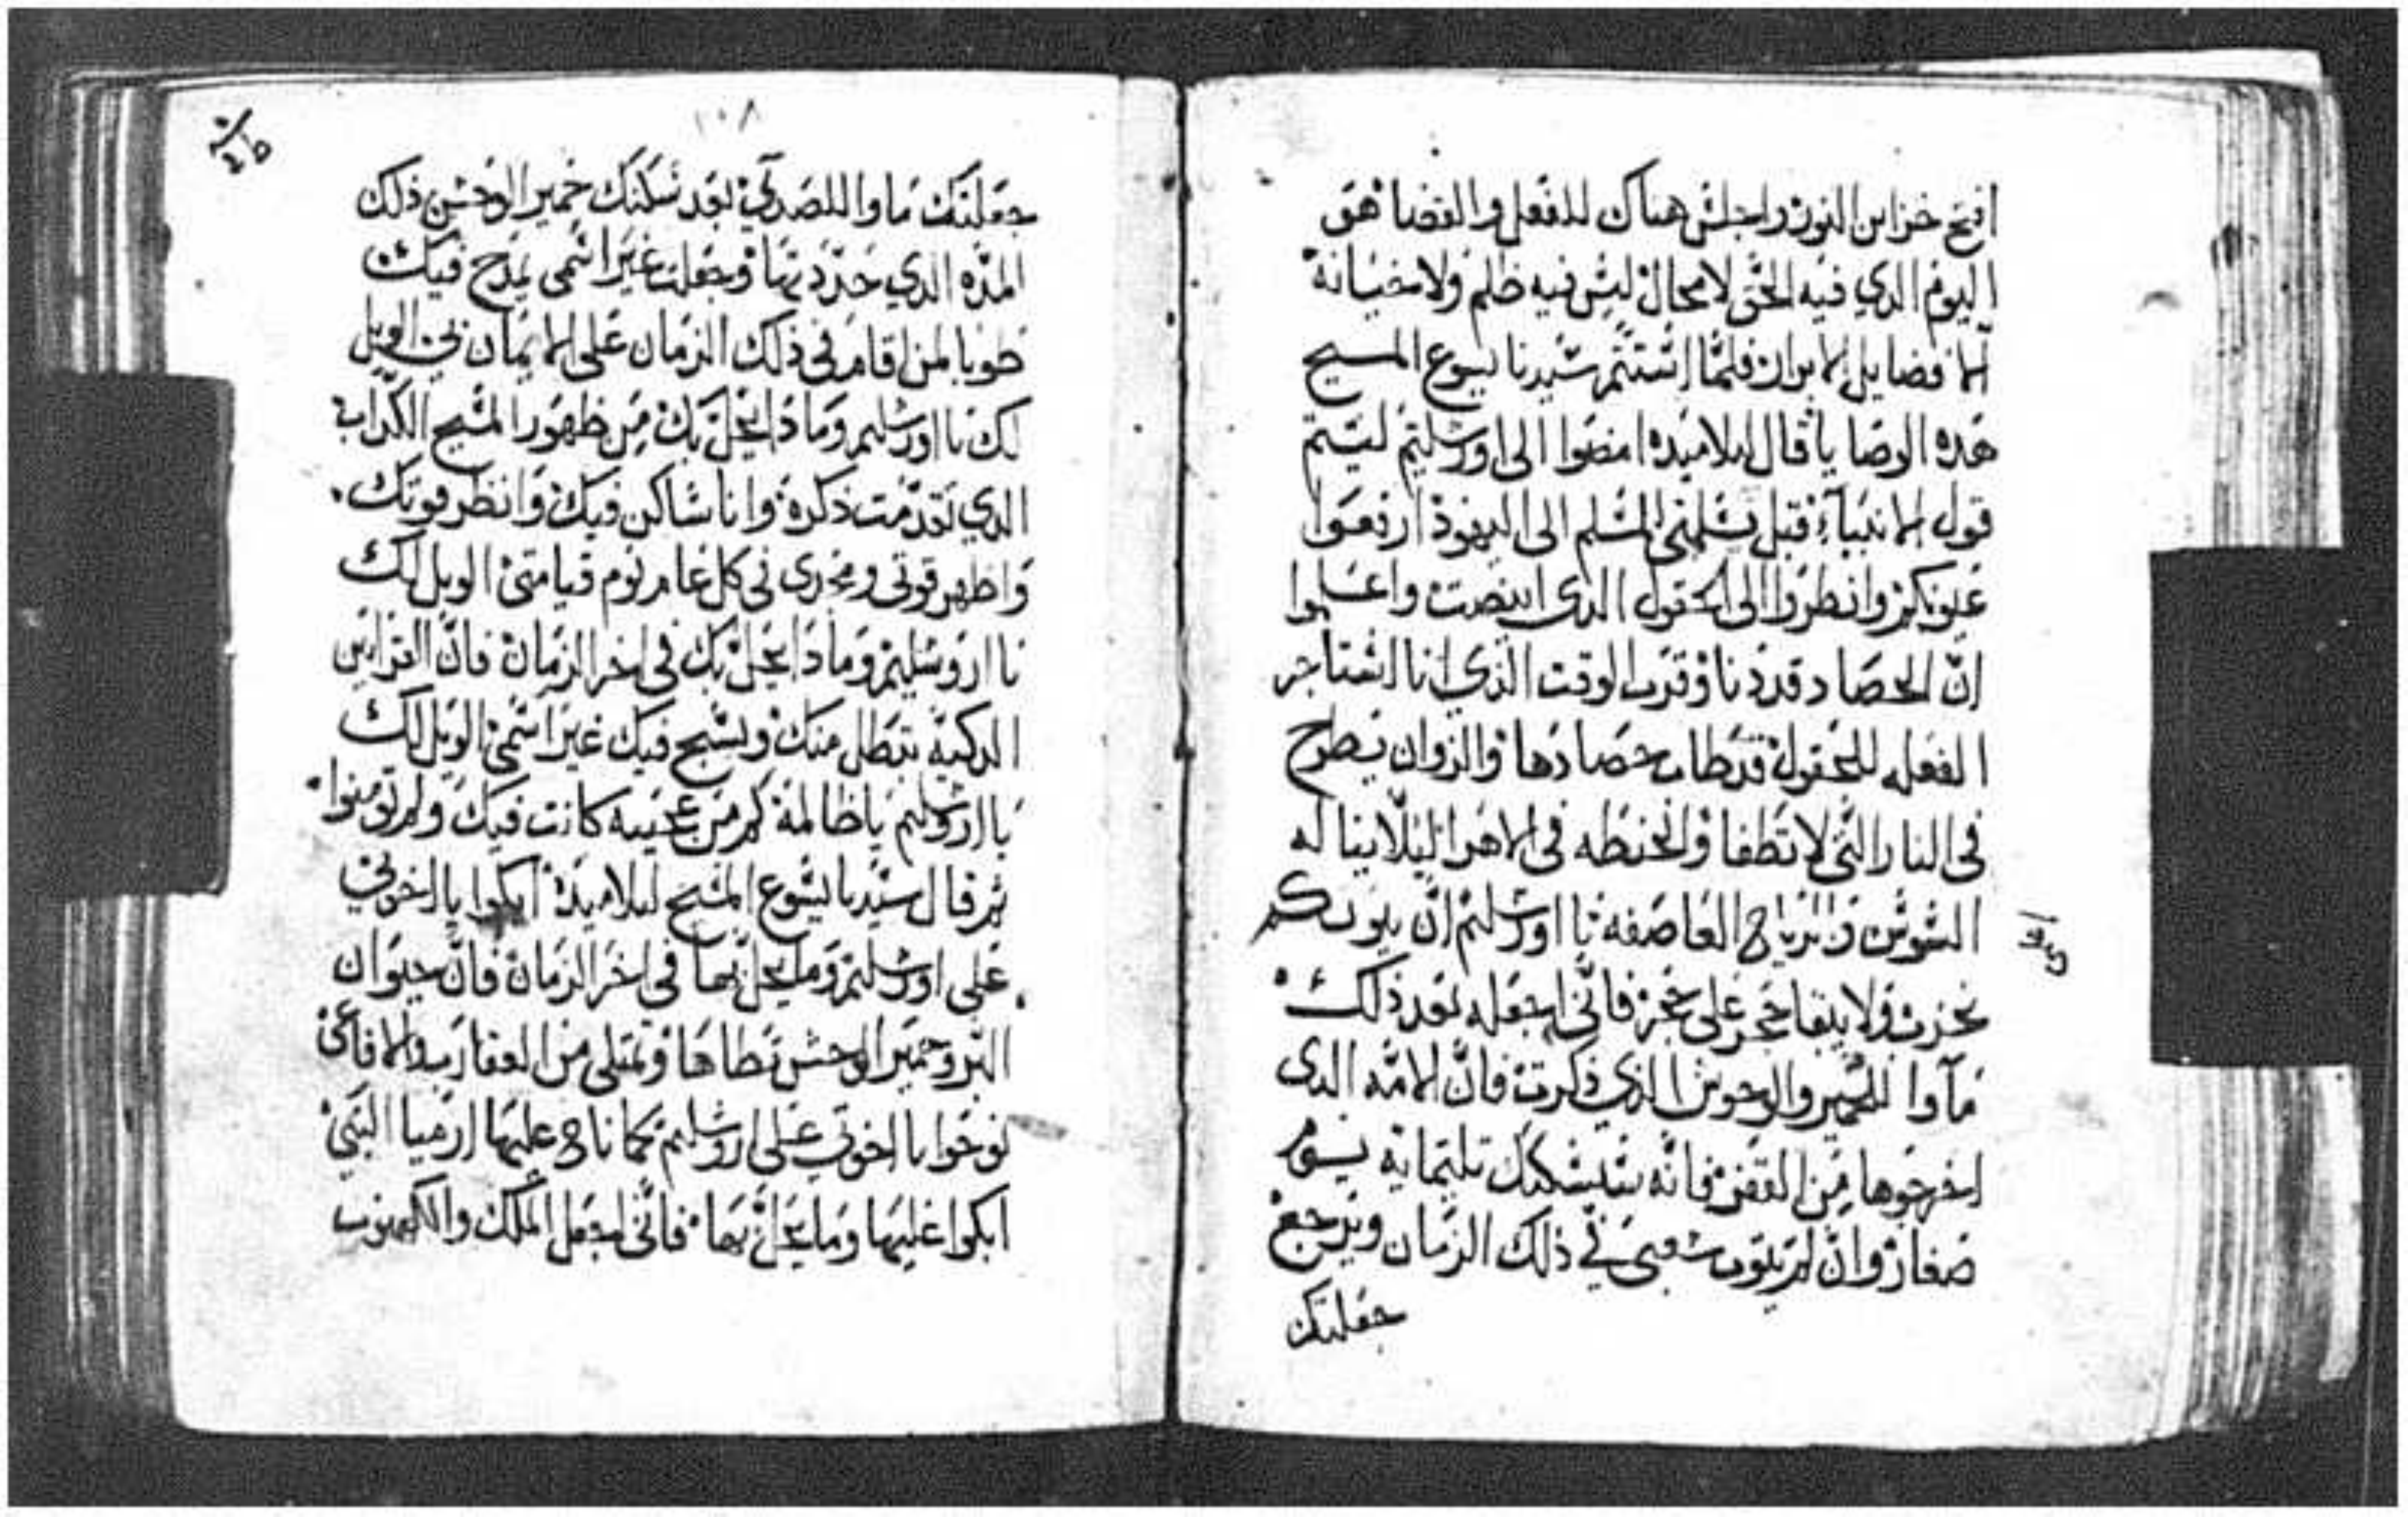 افتح خزاين النور واجلس هناك للفعل والقضا هو
اليوم الدي فيه الحق لا محال ليس فيه ظلم ولا مخبانة
الا فضايل الابرار فلما استتم سيدنا يسوع المسيح
هده الوصايا قال لتلاميده امضوا الى اورشليم ليتم
قول الانبيآء قبل تسلمني المسلم الى اليهود ارفعوا
عيونكم وانظروا الى الحقول الدي ابيضت واعلموا
ان الحصاد قد دنا وقرب الوقت الذي انا استاجر
الفعله للحقول قد طاب حصادها والزوان يطرح
في النار التي لا تطفا والحنطه في الاهرا ليلا يناله
السوس والرياح العاصفه يا اورشليم ان بيوتكم
تخرب ولا يبقا حجر على حجر فاني اجعله بعد ذلك
مآوا للحمير والوحوش الذي ذكرت فان الامه الدي
اخرجوها من القفر فانه سيسكنك تلتماية
صغار وان لم يتوب شعبي في ذلك الزمان ويرجع
جعلتك
١٠٨
جعلتك ماوا بعد سكنك حمير الوحش ذلك
المده الدي حددتها وجعلت غير اسمي يمدح فيك
طوبا لمن اقام في ذلك الزمان على الايمان بي الويل
لك يا اورشليم وماذا يحل بك من ظهور المسيح الكداب
الدي تقدمت ذكره وانا ساكن فيك وانظر قوتك
واظهر قوتي ومجدي في كل عام يوم قيامتي الويل لك
يا اروشليم وماذا يحل بك في اخر الزمان فان القرابين
الدكية تبطل منك ويسبح فيك غير اسمي الويل لك
يا اروشليم يا ظالمة كم من عجيبه كانت فيك ولم تومنوا
ثم قال سيدنا يسوع المسيح لتلاميدة ابكوا يا اخوتي
على اورشليم وما يحل بها في اخر الزمان فان حيوان
البر وحمير الوحش تطاها وتمتلى من العقارب والافاعي
نوحوا يا اخوتي على اروشليم كما ناح عليها ارميا النبي
ابكوا عليها وما يحل بها فاني اجعل الملك والكهنوت